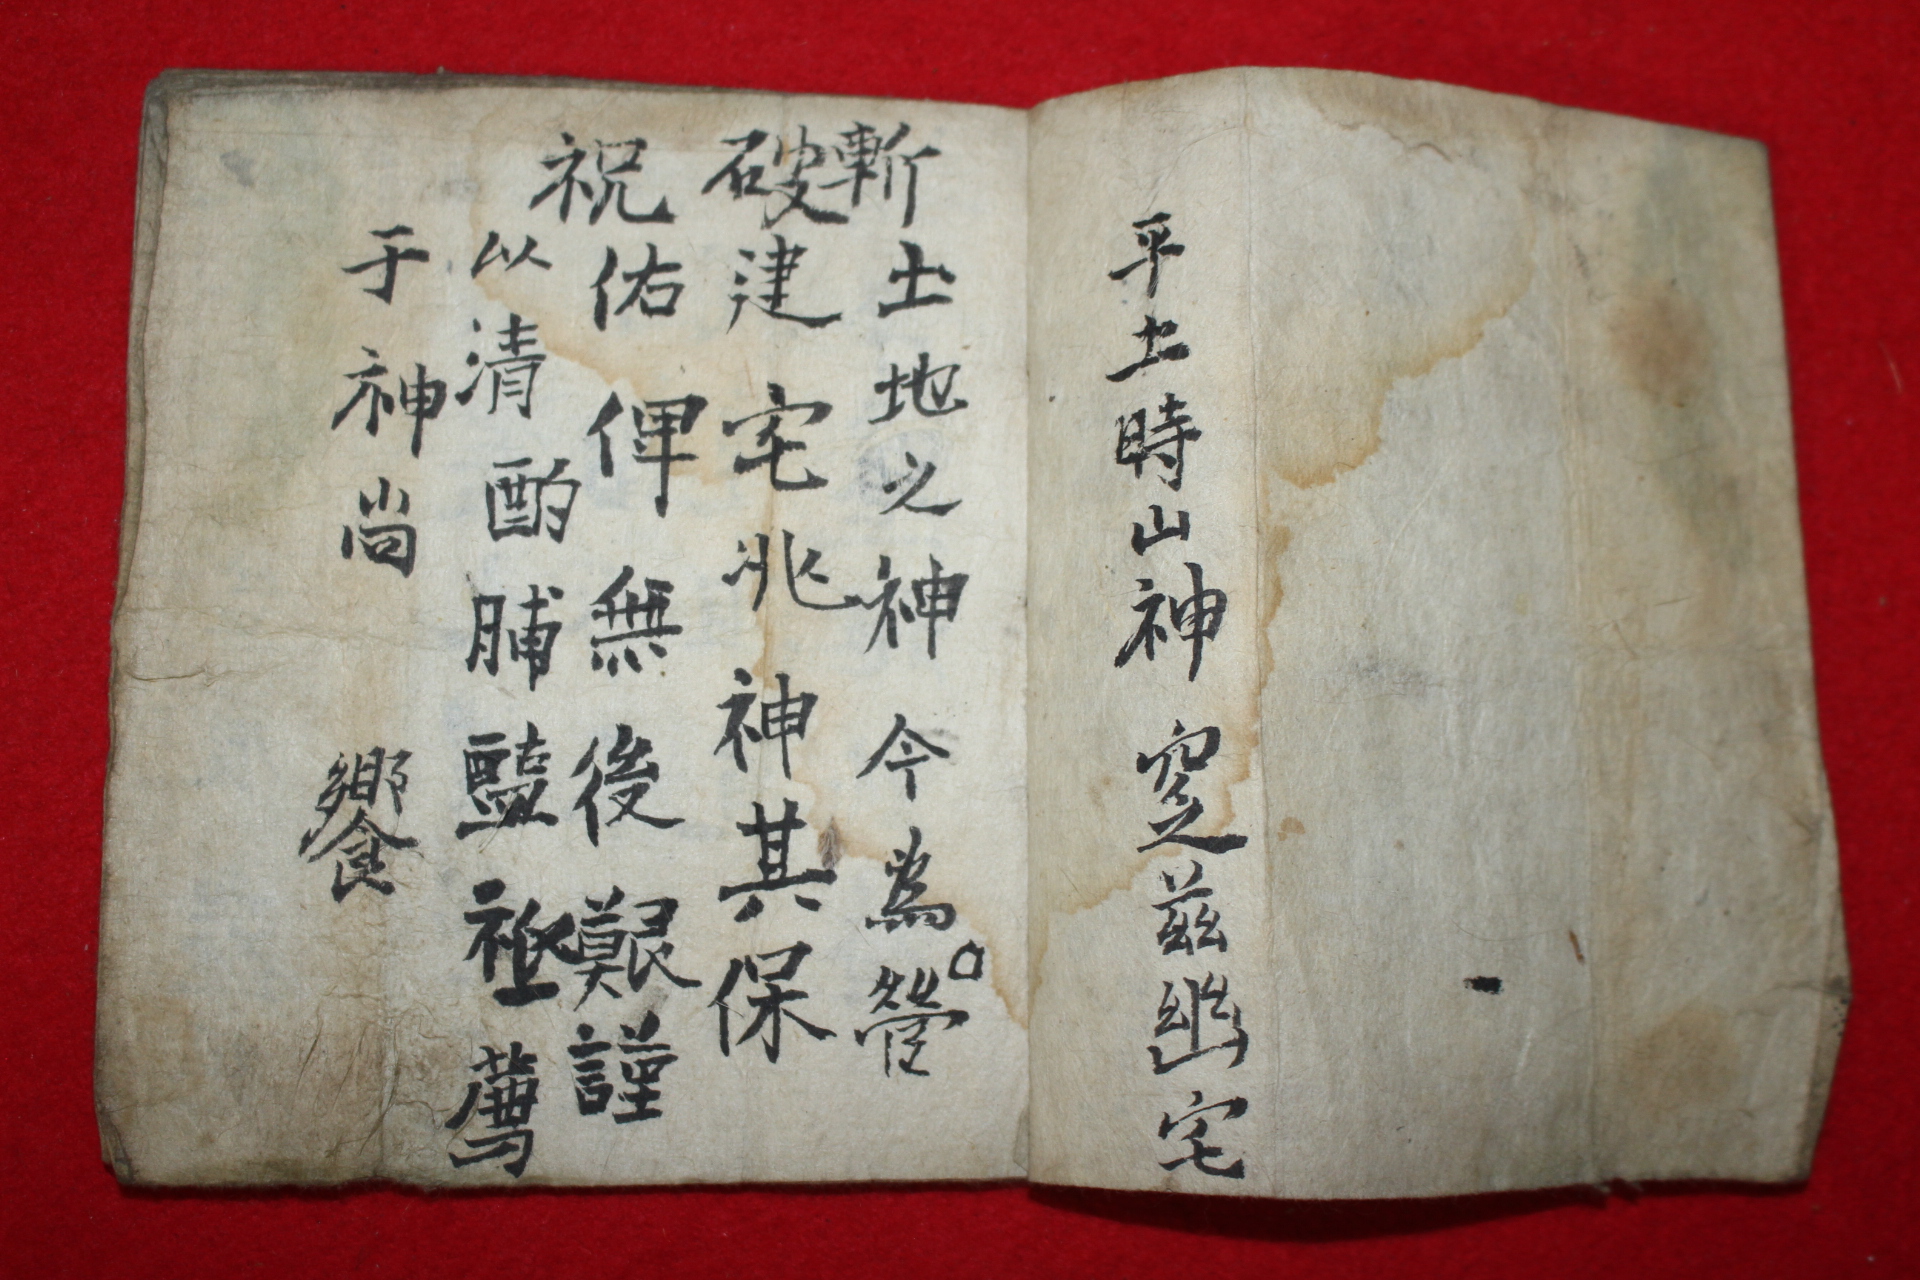 平土時山神 窆茲幽宅
斬土地之神今為營
破建宅兆神其保
祝佑俾無後艱謹
以清酌脯醢祗薦
于神尚 饗